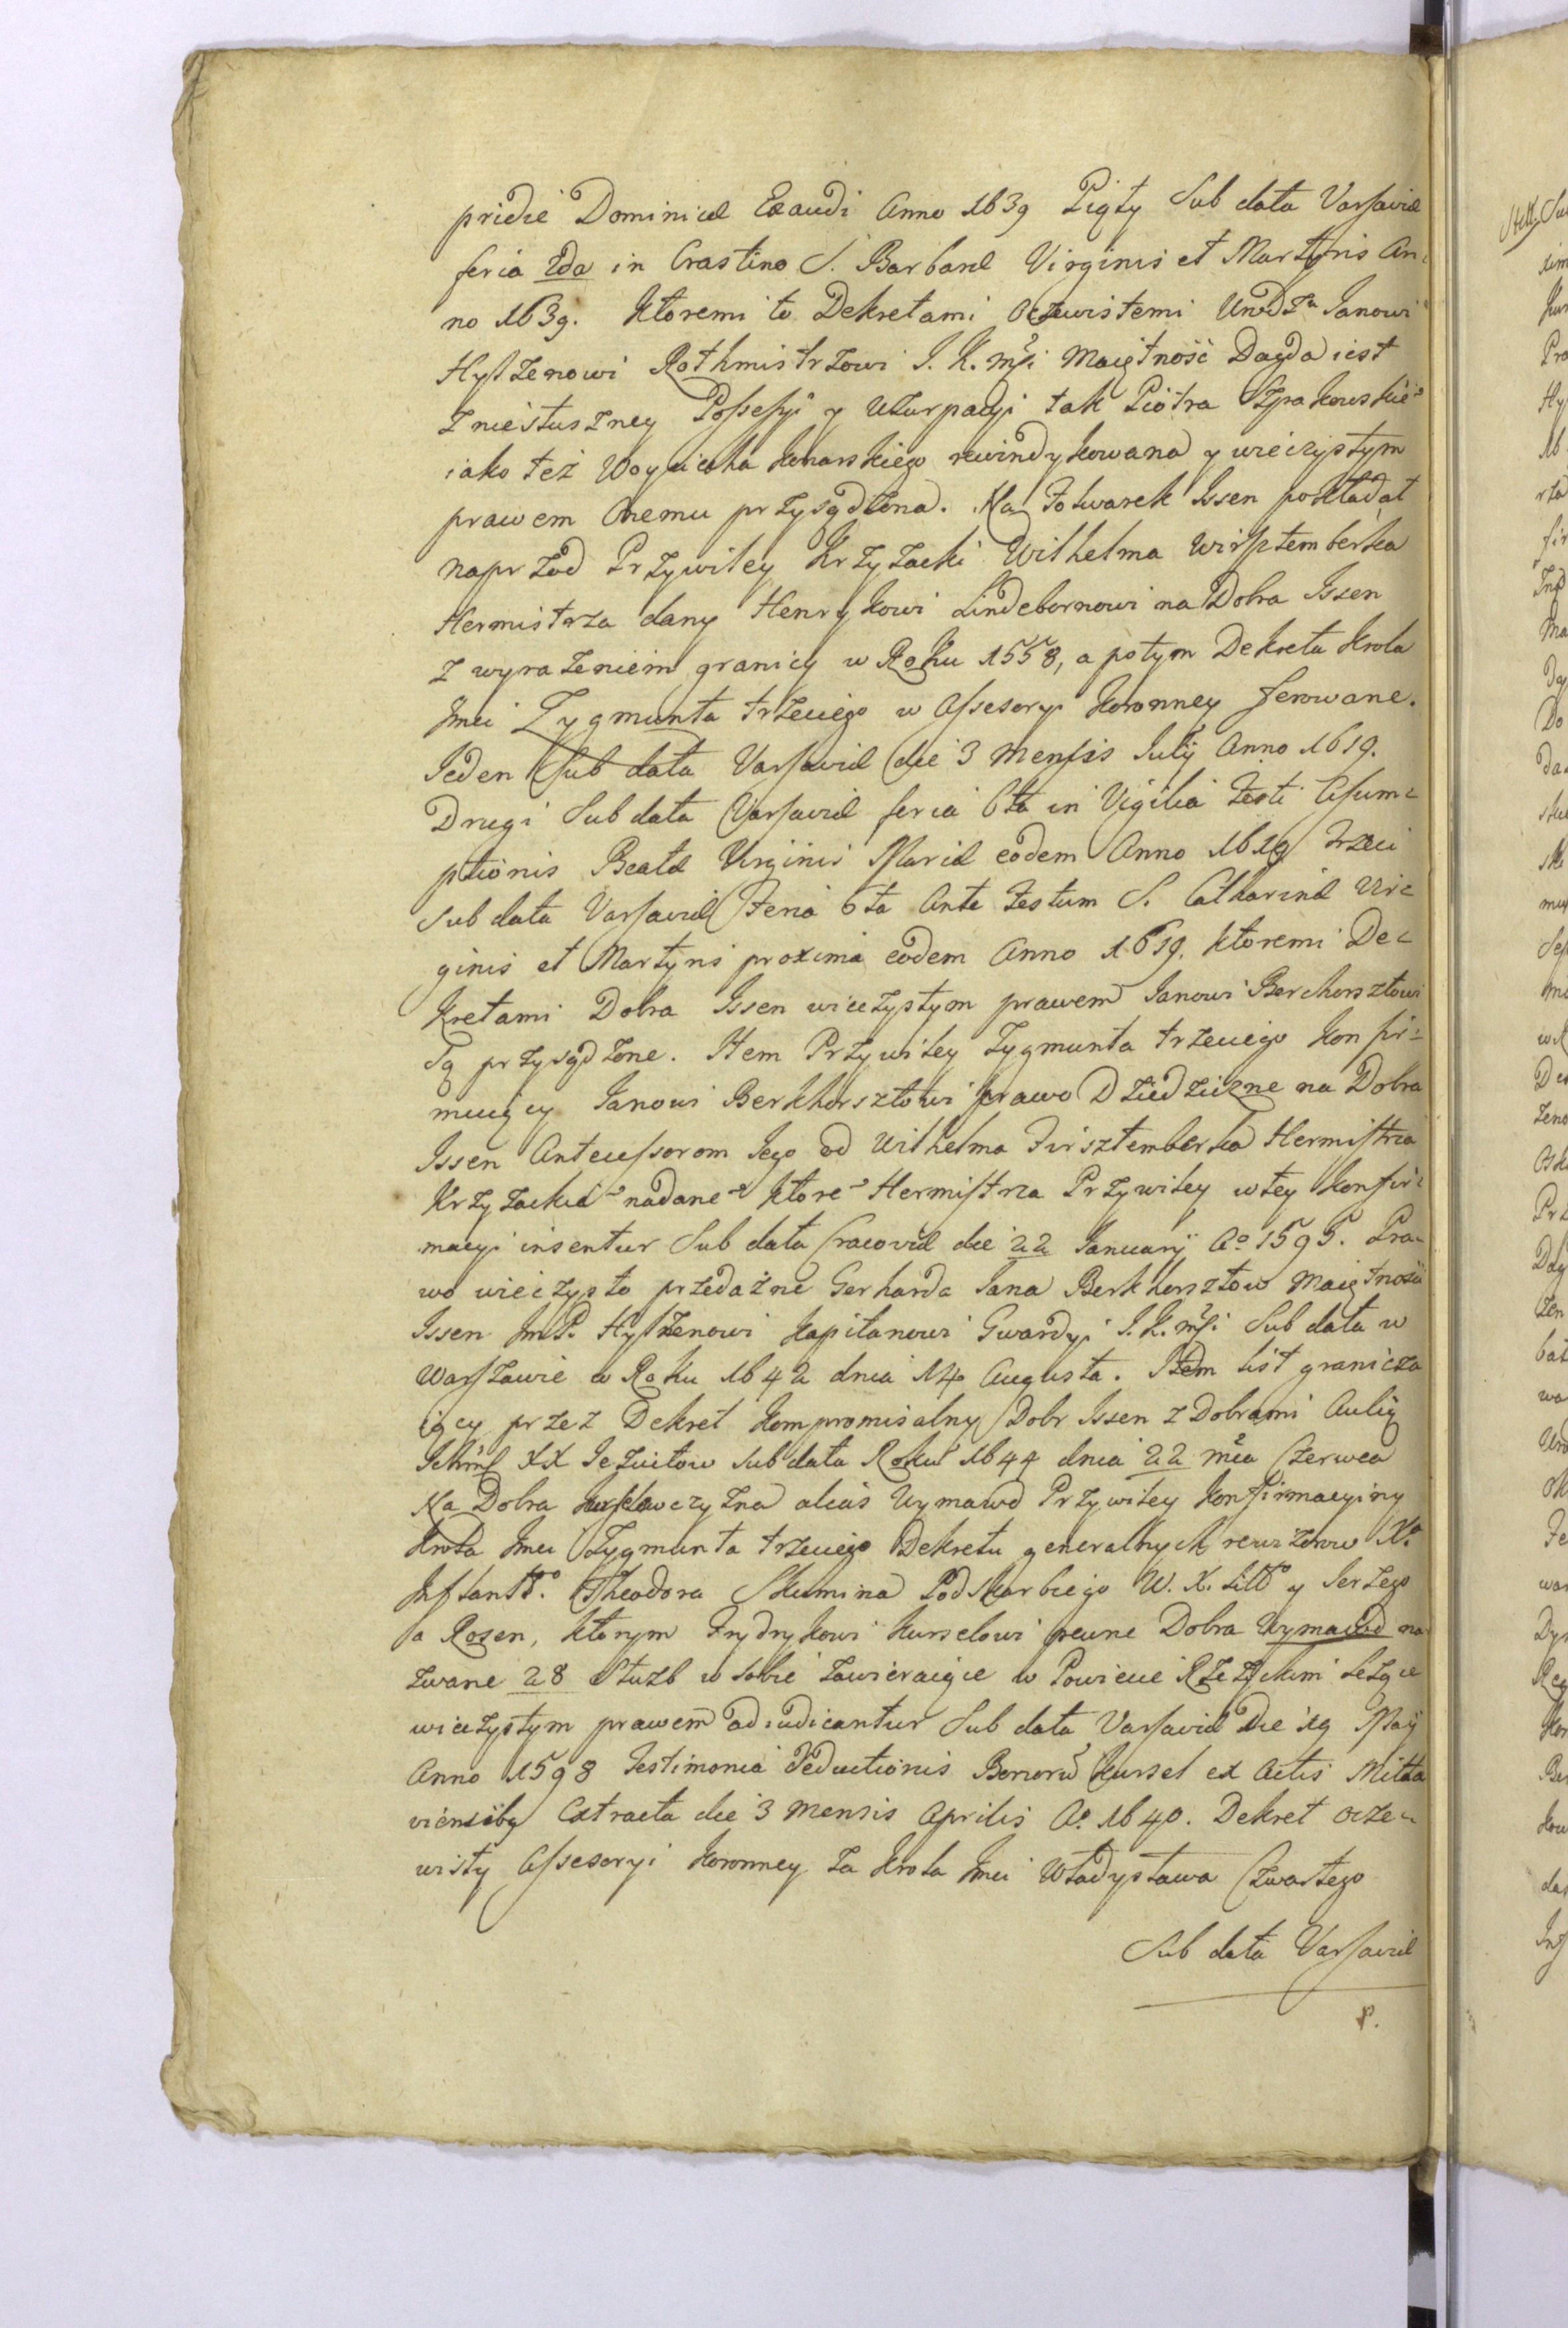 pridie Dominicæ Exaudi Anno 1639 Piąty Sub data Varsaviæ
feria 2da in Crastino S. Barbaræ Virginis et Martyris An-
no 1639. Ktoremi to Dekretami Oczewistemi Urodzu Janowi
Hylzenowi Rothmistrzowi J. K. mści Maiętność Dagda iest
z niesłuszney Possessyi y Uzurpacyi tak Piotra Szpakowskie°
iako też Woyciecha Konarskiego rewindykowana y wieczystym
prawem Onemu przysądzona. Na Folwarek Issen pokładał
naprzod Przywiley Krzyzacki Wilhelma Wirsztemberka
Hermistrza dany Henrykowi Lindebornowi na Dobra Issen
z wyrazeniem granicy w Roku 1558, a potym Dekreta Krola
Jmci Zygmunta trzeciego w Assesoryi Koronney ferowane.
Jeden Sub data Varsaviæ die 3 Mensis Julij Anno 1619.
Drugi Sub data Varsaviæ feria 6ta in Vigilia Festi Assum-
ptionis Beatæ Virginis Mariæ eodem Anno 1619 Trzeci
Sub data Varsaviæ Feria 6ta Ante Festum S. Catharinæ Vir-
ginis et Martyris proxima eodem Anno 1619. Ktoremi De-
kretami Dobra Issen wieczystym prawem Janowi Berchorsztowi
Są przysądzone. Item Przywiley Zygmunta trzeciego konfir-
muiący Janowi Berkhorsztowi prawo Dziedziczne na Dobra
Issen Antecessorom Jego od Wilhelma Firsztemberka Hermistrza
Krzyzackie° nadane ktore° Hermistrza Przywiley w tey konfir-
macyi inseritur Sub data Cracoviæ die 22 Januarij A° 1595. Pra-
wo wieczysto przedażne Gerharda Jana Berkhorsztow Maiętnośći
Issen Jm P. Hylzenowi Kapitanowi Gwardyi J. K. mśći Sub data w
Warszawie w Roku 1642 dnia 14 Augusta. Item list granicza
iący przez Dekret kompromisalny Dobr Issen z Dobrami Aulią
XX Jezuitow sub data Roku 1644 dnia 22 mca Czerwca
Na Dobra alias Uymawd Przywiley Konfirmacyiny
Krola Jmci Zygmunta trzeciego Dekretu generalnych rewizorow X°
Inflantt°. Theodora Skumina Podskarbiego W. X. Litt° y Jerzego
a Rosen, ktorym Frydrykowi Kurselowi pewne Dobra Uymawd na
zwane 28 Służb w sobie zawieraiące w Powiecie Rzezyckim leżące
wieczystym prawem adiudicantur Sub data Varsaviæ Die 19 Maij
Anno 1598 Testimonia Deductionis Bonorũ Kursel ex Actis Mitta
viensiby Extracta die 3 Mensis Aprilis A° 1640. Dekret ocze-
wisty Assesoryi Koronney za Krola Jmci Władysława Czwartego
Sub data Varsaviæ